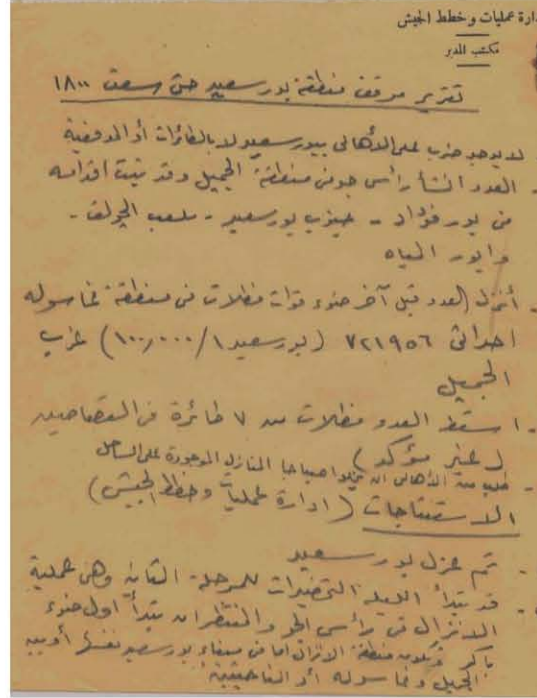 إدارة عمليات وخطط الجيش
مكتب المدير
تقرير موقف منطقة بور سعيد حتى سعت ١٨٠٠
لا يوجد ضرب على الأهالى ببور سعيد لا بالطائرات أو المدفعية
- العدو أنشأ رأس جوى منطقة الجميل وقد يثبت اقدامه
فى بور فؤاد - جنوب بور سعيد - ملعب الجولف -
وابور المياه
- أنزل العدو قبل آخر ضوء قوات مظلات فى منطقة غاسوله
احداثى ٧٢١٩٥٦ (بور سعيد ١/١٠٠,٠٠٠) غرب
الجميل
- اسقط العدو مظلات من ٧ طائرة فى القصاصين
(غير مؤكد)
- طلب من الأهالى ان يخلوا صباحا المنازل الموجودة على الساحل
الاستنتاجات (ادارة عمليات وخطط الجيش)
- تم عزل بور سعيد
- قد تبدأ الليلة التحضيرات للمرحلة الثانية وهى عملية
الانزال فى رأس الجو والمنتظر ان تبدأ اول ضوء
باكر وتكون منطقة الانزال اما فى ميناء بور سعيد نفسها أو بين
الجميل وغاسوله أو الناحيتين